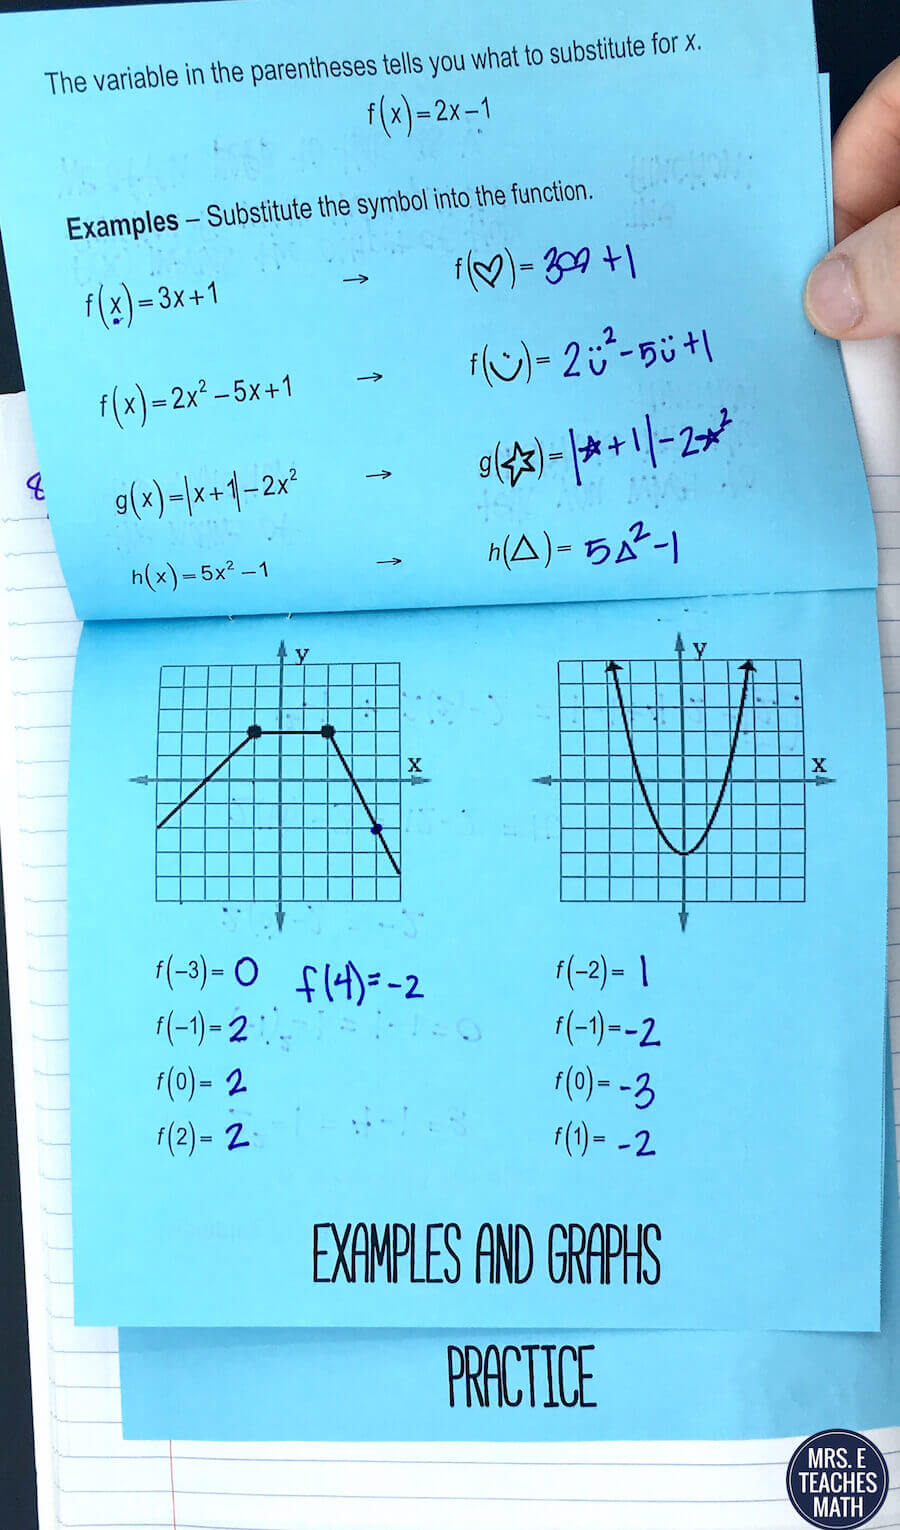 The variable in the parentheses tells you what to substitute for x.
f(x)=2x-1
Examples – Substitute the symbol into the function.
f(x)=3x+1 → f(♡)= 3♡+1
f(x)=2x²-5x+1 → f(ツ)= 2ü²-5ü+1
g(x)=|x+1|-2x² → g(☆)=|☆+1|-2☆²
h(x)=5x²-1 → h(△)= 5△²-1
y y
x x
f(-3)= 0 f(4)=-2 f(-2)= 1
f(-1)= 2 f(-1)=-2
f(0)= 2 f(0)= -3
f(2)= 2 f(1)= -2
EXAMPLES AND GRAPHS
PRACTICE
MRS. E
TEACHES
MATH